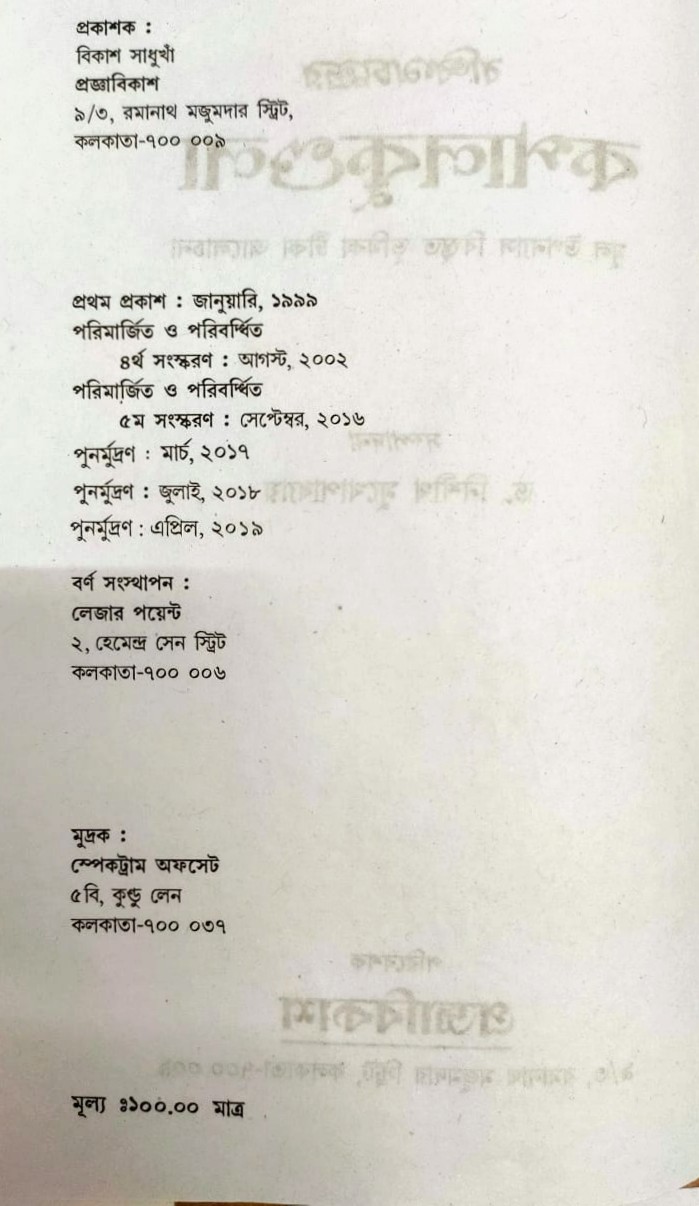 প্রকাশক :
বিকাশ সাধুখাঁ
প্রজ্ঞাবিকাশ
৯/৩, রমানাথ মজুমদার স্ট্রিট,
কলকাতা-৭০০ ০০৯
প্রথম প্রকাশ : জানুয়ারি, ১৯৯৯
পরিমার্জিত ও পরিবর্ধিত
৪র্থ সংস্করণ : আগস্ট, ২০০২
পরিমার্জিত ও পরিবর্ধিত
৫ম সংস্করণ : সেপ্টেম্বর, ২০১৬
পুনর্মুদ্রণ : মার্চ, ২০১৭
পুনর্মুদ্রণ : জুলাই, ২০১৮
পুনর্মুদ্রণ : এপ্রিল, ২০১৯
বর্ণ সংস্থাপন :
লেজার পয়েন্ট
২, হেমেন্দ্র সেন স্ট্রিট
কলকাতা-৭০০ ০০৬
মুদ্রক :
স্পেকট্রাম অফসেট
৫বি, কুণ্ডু লেন
কলকাতা-৭০০ ০৩৭
মূল্য ঃ১০০.০০ মাত্র